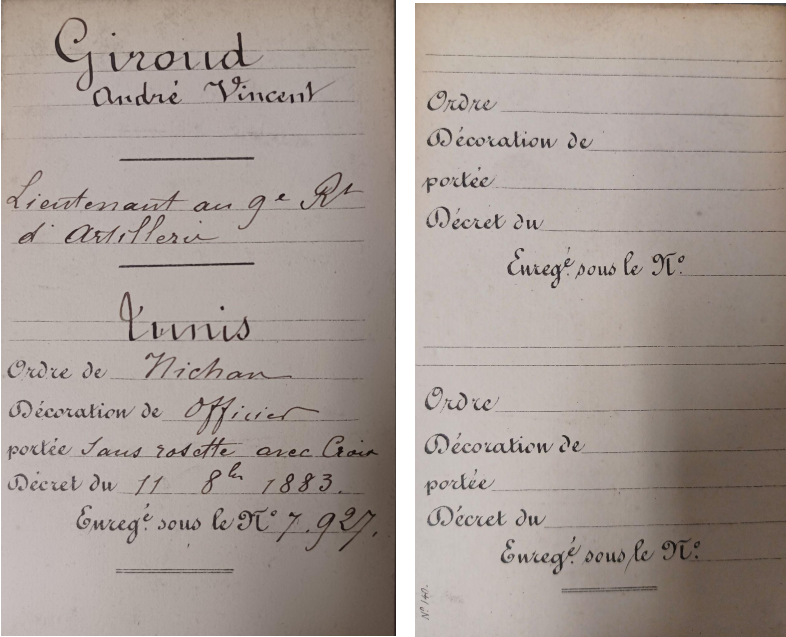 Giroud
André Vincent
Lieutenant au 9e Rt
d'Artillerie
Tunis
Ordre de Nichan
Décoration de Officier
portée Sans rosette avec Croix
Décret du 11 8bre 1883.
Enregé. sous le No 7.927.
Ordre
Décoration de
portée
Décret du
Enregé. sous le No.
Ordre
Décoration de
portée
Décret du
Enregé. sous le No.
No 140.